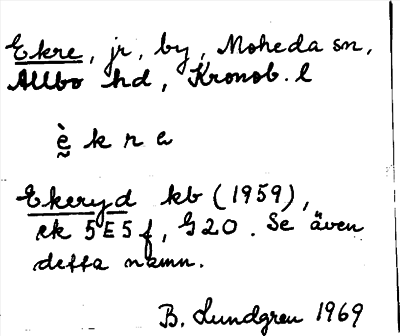 Ekre, jr, by, Moheda sn,
Allbo hd, Kronob. l
ḛ̀ k r a
Ekeryd kb (1959),
ek 5E5f, G20. Se även
detta namn.
B. Lundgren 1969